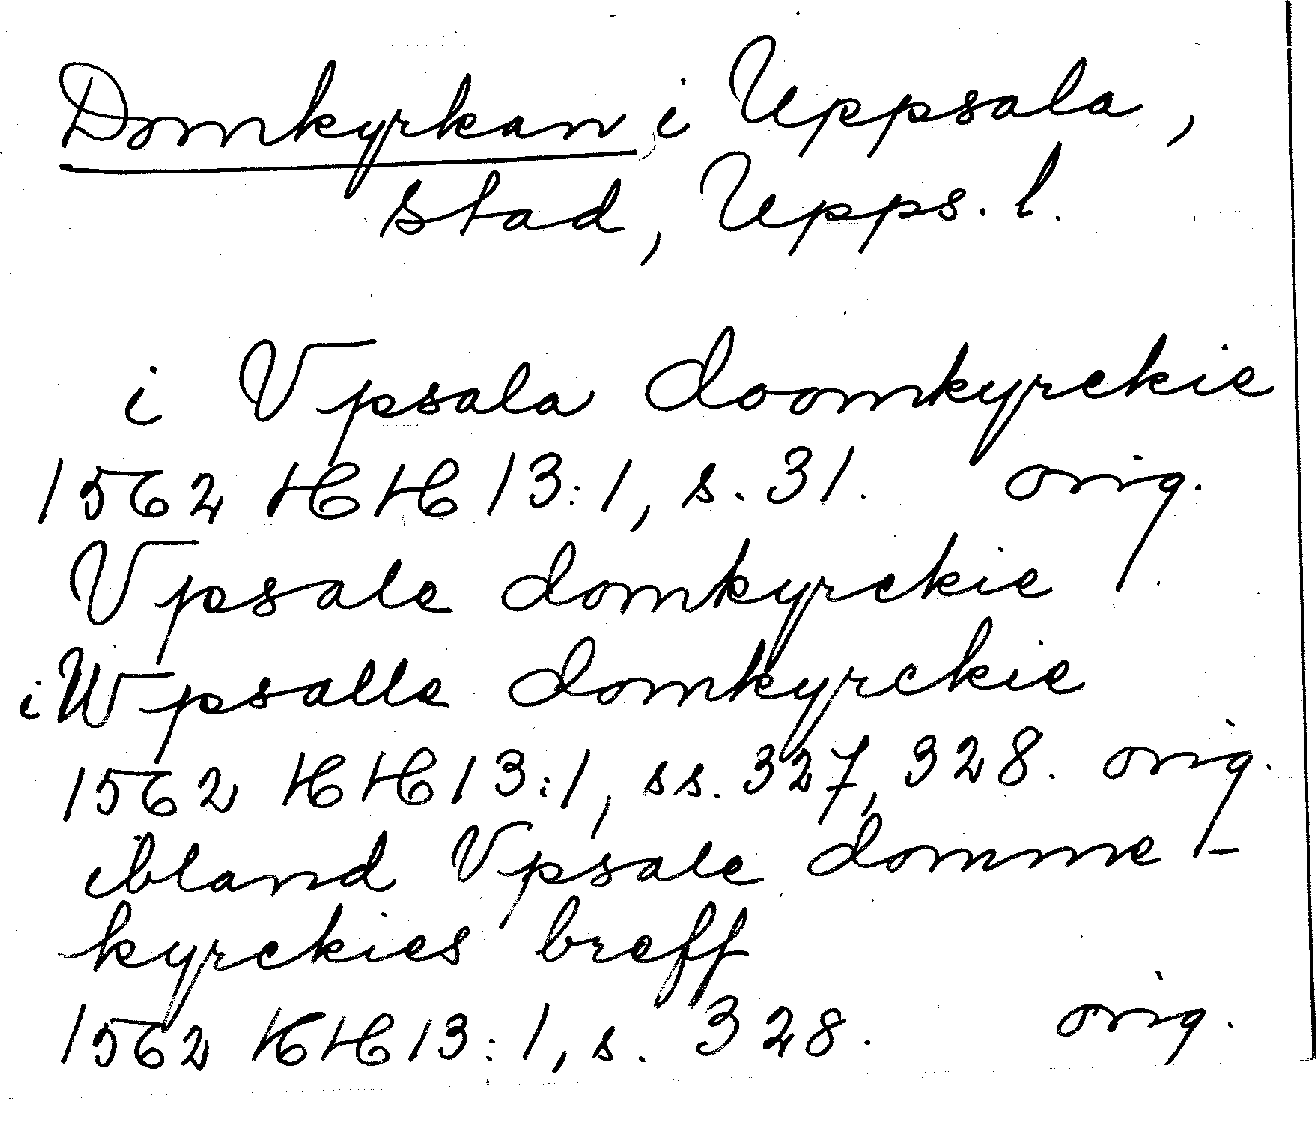 Domkyrkan i Uppsala,
stad, Upps. l.
i Vpsala doomkyrckie
1562 HH 13:1, s. 31. orig.
Vpsale domkyrckie
i Wpsalle domkyrckie
1562 HH 13:1, ss. 327, 328. orig.
ibland Vpsale domme-
kyrckies breff
1562 HH 13:1, s. 328. orig.